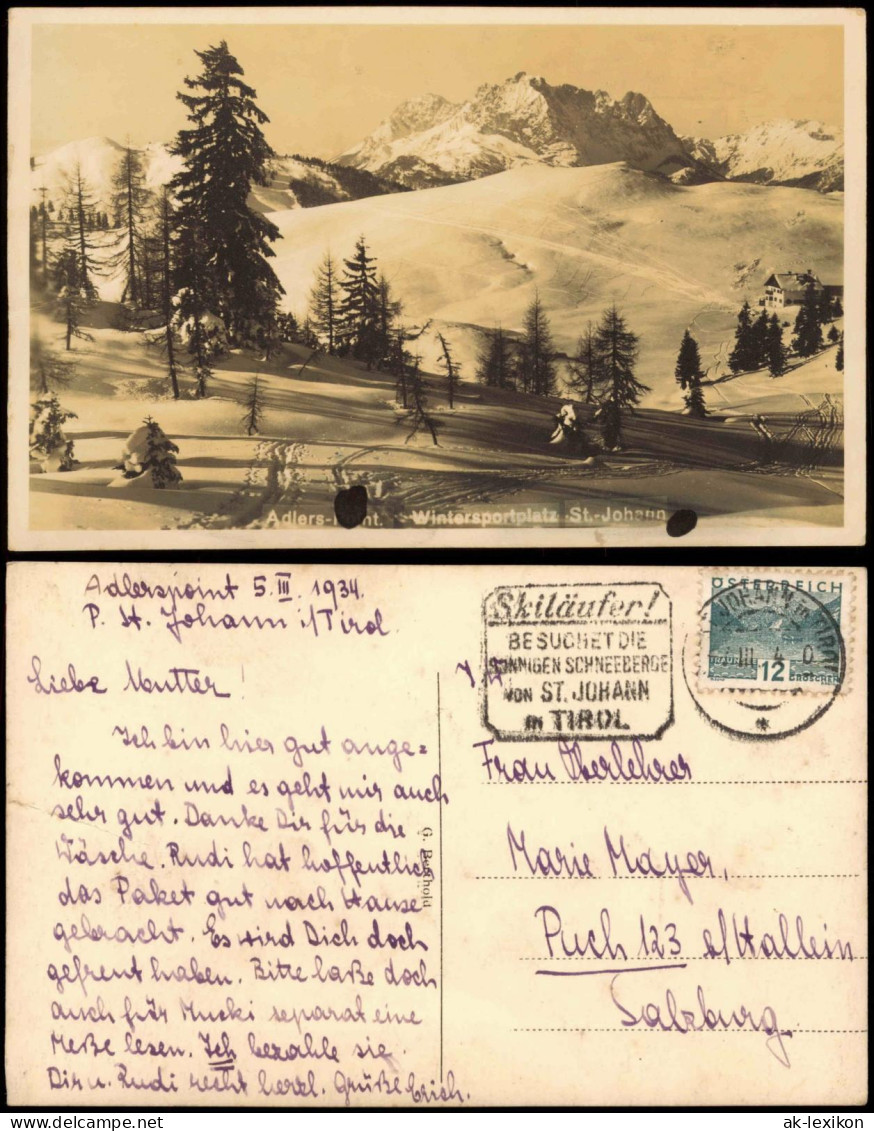 Adlers- nt. Wintersportplatz St.-Johann
Adlerspoint 5.III.1934.
P. St. Johann i/Tirol
Liebe Mutter!
Ich bin hier gut ange=
kommen und es geht mir auch
sehr gut. Danke Dir für die
Wäsche. Rudi hat hoffentlich
das Paket gut nach Hause
gebracht. Es wird Dich doch
gefreut haben. Bitte laße doch
auch für Mucki separat eine
Meße lesen. Ich bezahle sie.
Dir u. Rudi recht herzl. Grüße Erich.
G. Berthold
Skiläufer!
BESUCHET DIE
SONNIGEN SCHNEEBERGE
VON ST. JOHANN
IN TIROL
ST. JOHANN in TIROL
III 4 0
*
ÖSTERREICH
12
GROSCHEN
Frau Oberlehrer
Marie Mayer,
Puch 123 o/Hallein
Salzburg
ak-lexikon.com